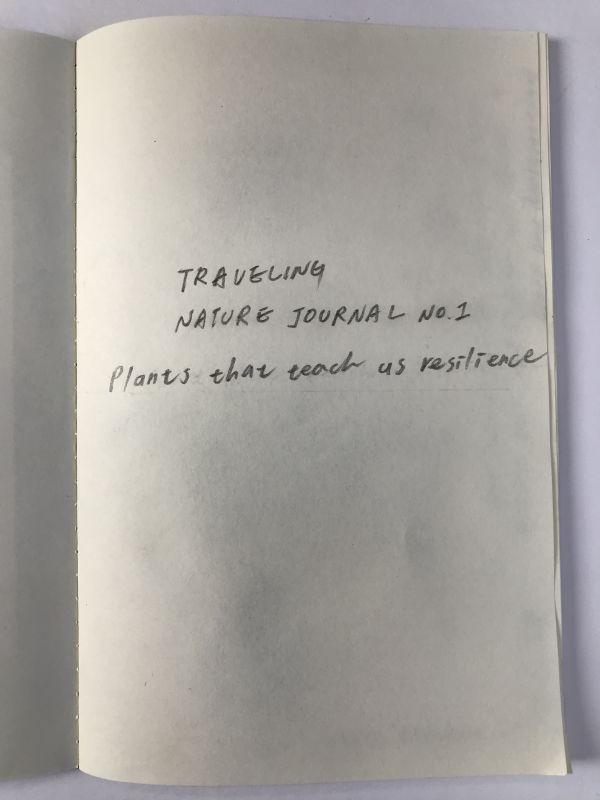 TRAVELING
NATURE JOURNAL NO.1
Plants that teach us resilience